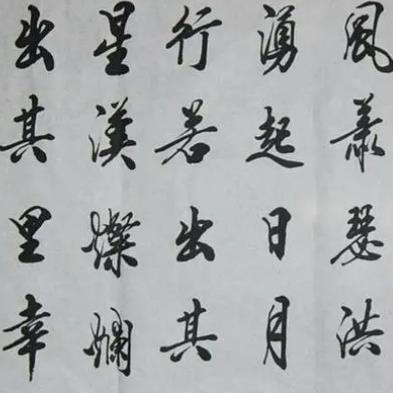 風蕭瑟洪
湧起日月
行若出其
星漢燦爛
出其里幸